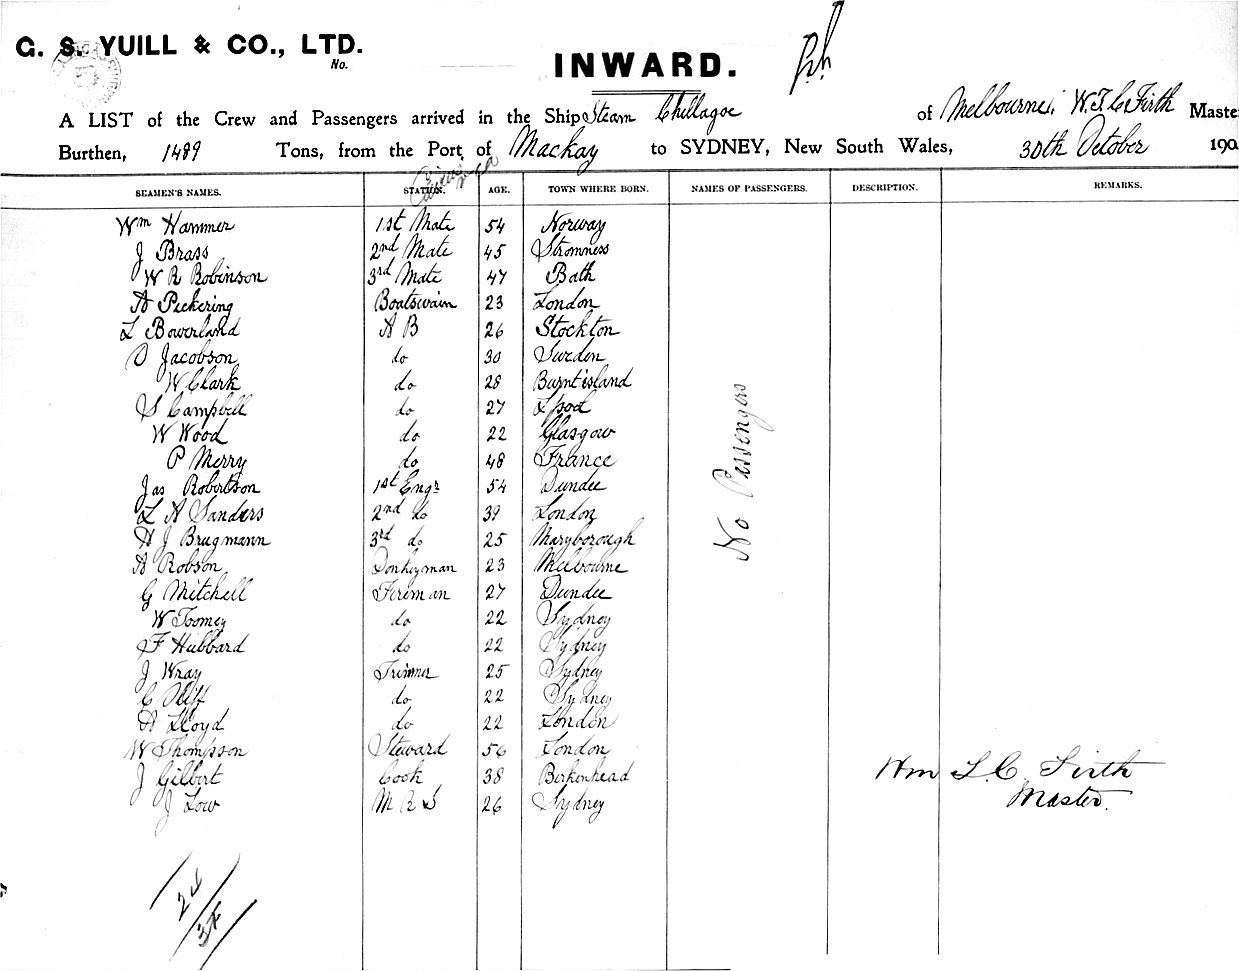 G. S. YUILL & CO., LTD.
No.
INWARD.
A LIST of the Crew and Passengers arrived in the Ship Steam Chillagoe of Melbourne, W. T. C. Firth Maste
Burthen, 1489 Tons, from the Port of Mackay to SYDNEY, New South Wales, 30th October 190
SEAMEN'S NAMES. STATION. AGE. TOWN WHERE BORN. NAMES OF PASSENGERS. DESCRIPTION. REMARKS.
Wm Hammer 1st Mate 54 Norway
J Brass 2nd Mate 45 Stromness
W R Robinson 3rd Mate 47 Bath
A Pickering Boatswain 23 London
L Bowerland A B 26 Stockton
O Jacobson do 30 Sweden
W Clark do 28 Burntisland
S Campbell do 27 Lpool
W Wood do 22 Glasgow
P Merry do 48 France
Jas Robertson 1st Engr 54 Dundee
L A Sanders 2nd do 39 London
H J Brugmann 3rd do 25 Maryborough
A Robson Donkeyman 23 Melbourne
G Mitchell Fireman 27 Dundee
W Toomey do 22 Sydney
F Hubbard do 22 Sydney
J Wray Trimmer 25 Sydney
C do 22 Sydney
A Lloyd do 22 London
W Thompson Steward 56 London
J Gilbert Cook 38 Birkenhead
J Low M R S 26 Sydney
No Passengers
Wm L. C. Firth
Master.
24